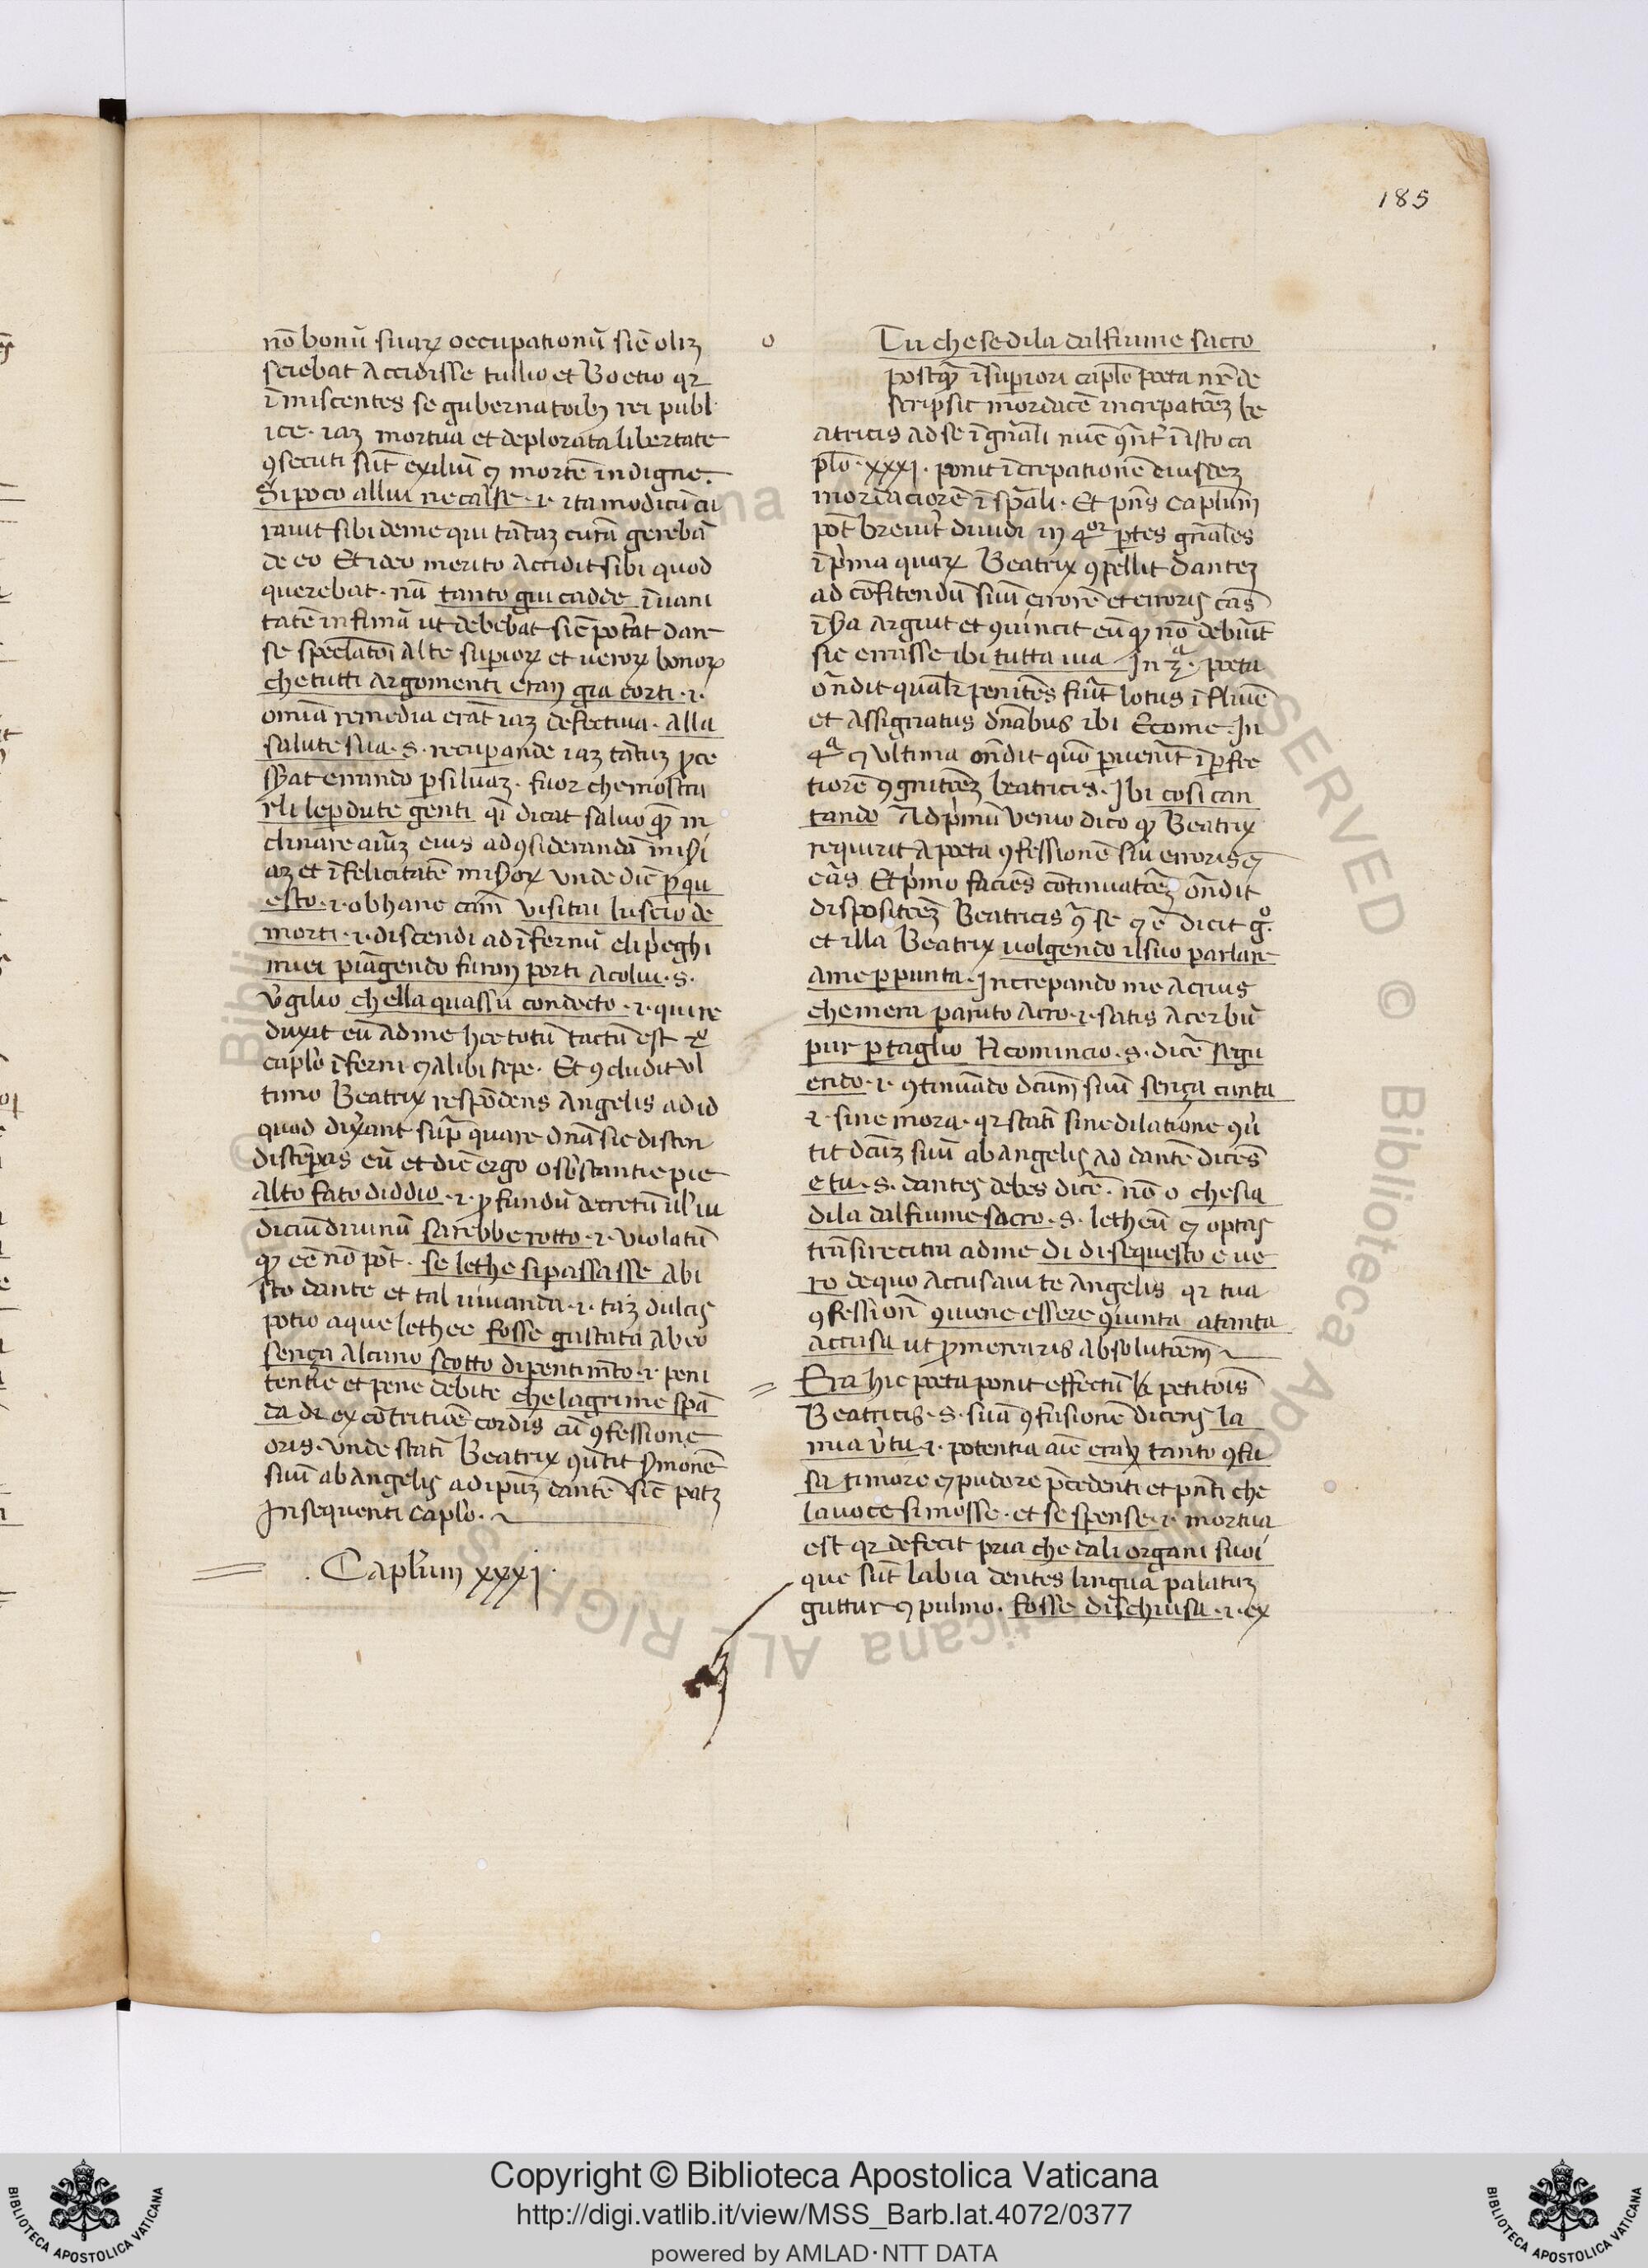 185
nō bonū suaꝝ occupationū sic̄ oliꝫ
sciebat accidisse tullio et Boetio qꝛ
īmiscentes se gubernatoībꝫ rei publ
ice. iaꝫ mortua et deplorata libertate
ꝯsecuti sūt exiliū ⁊ mortē indigne.
Si poco allui ne calse .i. ita modicū cu
rauit sibi de me qui tātaꝫ curā gerebā
de eo Et ideo merito accidit sibi quod
querebat. nā tanto giu cadde ī uani
tatē infimā ut debebat sic̄ pot̄at dare
se spect̄atōi alte supioꝝ et ueroꝝ bonoꝝ
che tutti argomenti eran gia corti .i.
om̄ia remedia erāt iaꝫ defectiua. alla
salute sua .s. recuperande iaꝫ tātuꝫ ꝓce
sſ̄at errando ꝑ siluaꝫ. fuor che mostra
rli le ꝑdute genti q̄i dicat saluo qꝫ in
clinare aīuꝫ eius ad ꝯsiderandā miſ̄i
aꝫ et īfelicitatē miſ̄oꝝ unde dic̄ ꝑ qu
esto .i. ob hanc cām̄ visitai luscio de
morti .i. discendi ad īfernū eli p̄eghi
miei piāgendo furon porti a colui .s.
v̄gilio ch ella quassu condecto .i. qui re
duxit eū ad me hec totū tactū est 2º
caplō īferni ⁊ alibi sepe. Et ꝯcludit vl
timo Beatrix respōdens angelis ad id
quod dix̄ant sup̄ quare dn̄a sic disten
distēꝑas eū et dic̄ ergo o sb̄stantie pie
alto fato di ddio .i. ꝓfundū decretū ul̄ iu
diciū diuinū sarebbe rotto .i. violatū
qꝫ eē nō pōt. se lethe si passasse ab i
sto dante et tal uiuanda .i. taꝫ dulcis
potio aque lethee fosse gustata ab eo
senza alcuno scotto di pentim̄to .i. peni
tentīe et pene debite che lagrime spā
da di ex cōtritiōe cordis cū ꝯfessione
oris. unde statī Beatrix ꝯūtit s̄monē
suū ab angelis ad ip̄uꝫ dantē sic̄ patꝫ
In sequenti caplō.
Caplūm xxxj.
o
Tu che se di la dal fiume sacro
postqꝫ ī superiori caplō poeta nr̄ de
scripsit mordacē increpatōeꝫ be
atricis ad se ī gn̄ali nūc ꝯn̄t̄ ī isto ca
plō. xxxj. ponit īcrepationē eiusdeꝫ
mordaciorē ī sp̄ali. Et pn̄s caplūm
pōt breuit̄ diuidi in 4ᵒʳ ꝑtes gn̄ales
ī p̄ma quaꝝ Beatrix ꝯpellit danteꝫ
ad cōfitendū suū errorē et erroris cāꝫ
ī 2ᵃ arguit et ꝯuincit eū qꝫ nō debuīt
sic errasse ibi tutta uia In 3ᵃ. poeta
on̄dit qualr̄ penitēs fūit lotus ī fluuē
et assigratus dn̄abus ibi Ecome. In
4ᵃ ⁊ vltima on̄dit quō peruenit ī ꝑfec
tiorē ꝯgnitōeꝫ beatricis. Ibi cosi can
tando Ad p̄mū venio dico qꝫ Beatrix
requirit a poeta ꝯfessionē sui erroris ⁊
cās. Et p̄mo faciēs continuatōeꝫ on̄dit
dispositōeꝫ Beatricis ꝯ̄ se ⁊ ē dicit g̊.
et illa Beatrix volgendo il suo parlare
a me ꝑ punta. Increpando me acrius
che mera paruto acro .i. satis acerbū
pur ꝑ taglio Ricomincio .s. dicē segu
endo .i. ꝯtinuādo dcūm suū senza cunta
.i. sine mora. qꝛ statī sine dilatione ꝯū
tit dcūꝫ suū ab angelis ad dantē dicēs
e tu .s. dantes debes dicē. nō o che sia
di la dal fiume sacro .s. letheū ⁊ optas
trāsire citra ad me di di se questo e ue
ro de quo accusaui te angelis qꝛ tua
ꝯfession̄ ꝯuene essere ꝯiunta a tanta
accusa ut ꝓmerearis absolutōem
Era hic poeta ponit effectū petitōis
Beatricis .s. suā ꝯfusionē dicens la
mia v̄tu .i. potentia aīe eray tanto ꝯfu
sa timore ⁊ pudore p̄cedenti et pn̄ti che
la uoce si mosse. et se spense .i. mortua
est qꝛ defecit pria che dali organi suoi
que sūt labia dentes lingua palatuꝫ
guttur ⁊ pulmo. fosse dischiusa .i. ex
Copyright © Biblioteca Apostolica Vaticana
http://digi.vatlib.it/view/MSS_Barb.lat.4072/0377
powered by AMLAD·NTT DATA
BIBLIOTECA APOSTOLICA VATICANA
BIBLIOTECA APOSTOLICA VATICANA